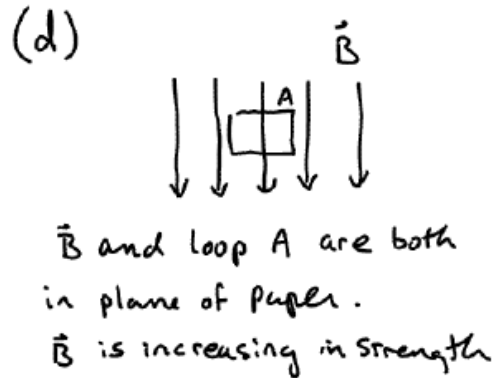 (d)
B⃗
A
B⃗ and loop A are both
in plane of paper.
B⃗ is increasing in strength